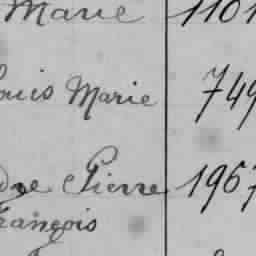 Marie 1101
ouis Marie 749
dre Pierre 1967
François